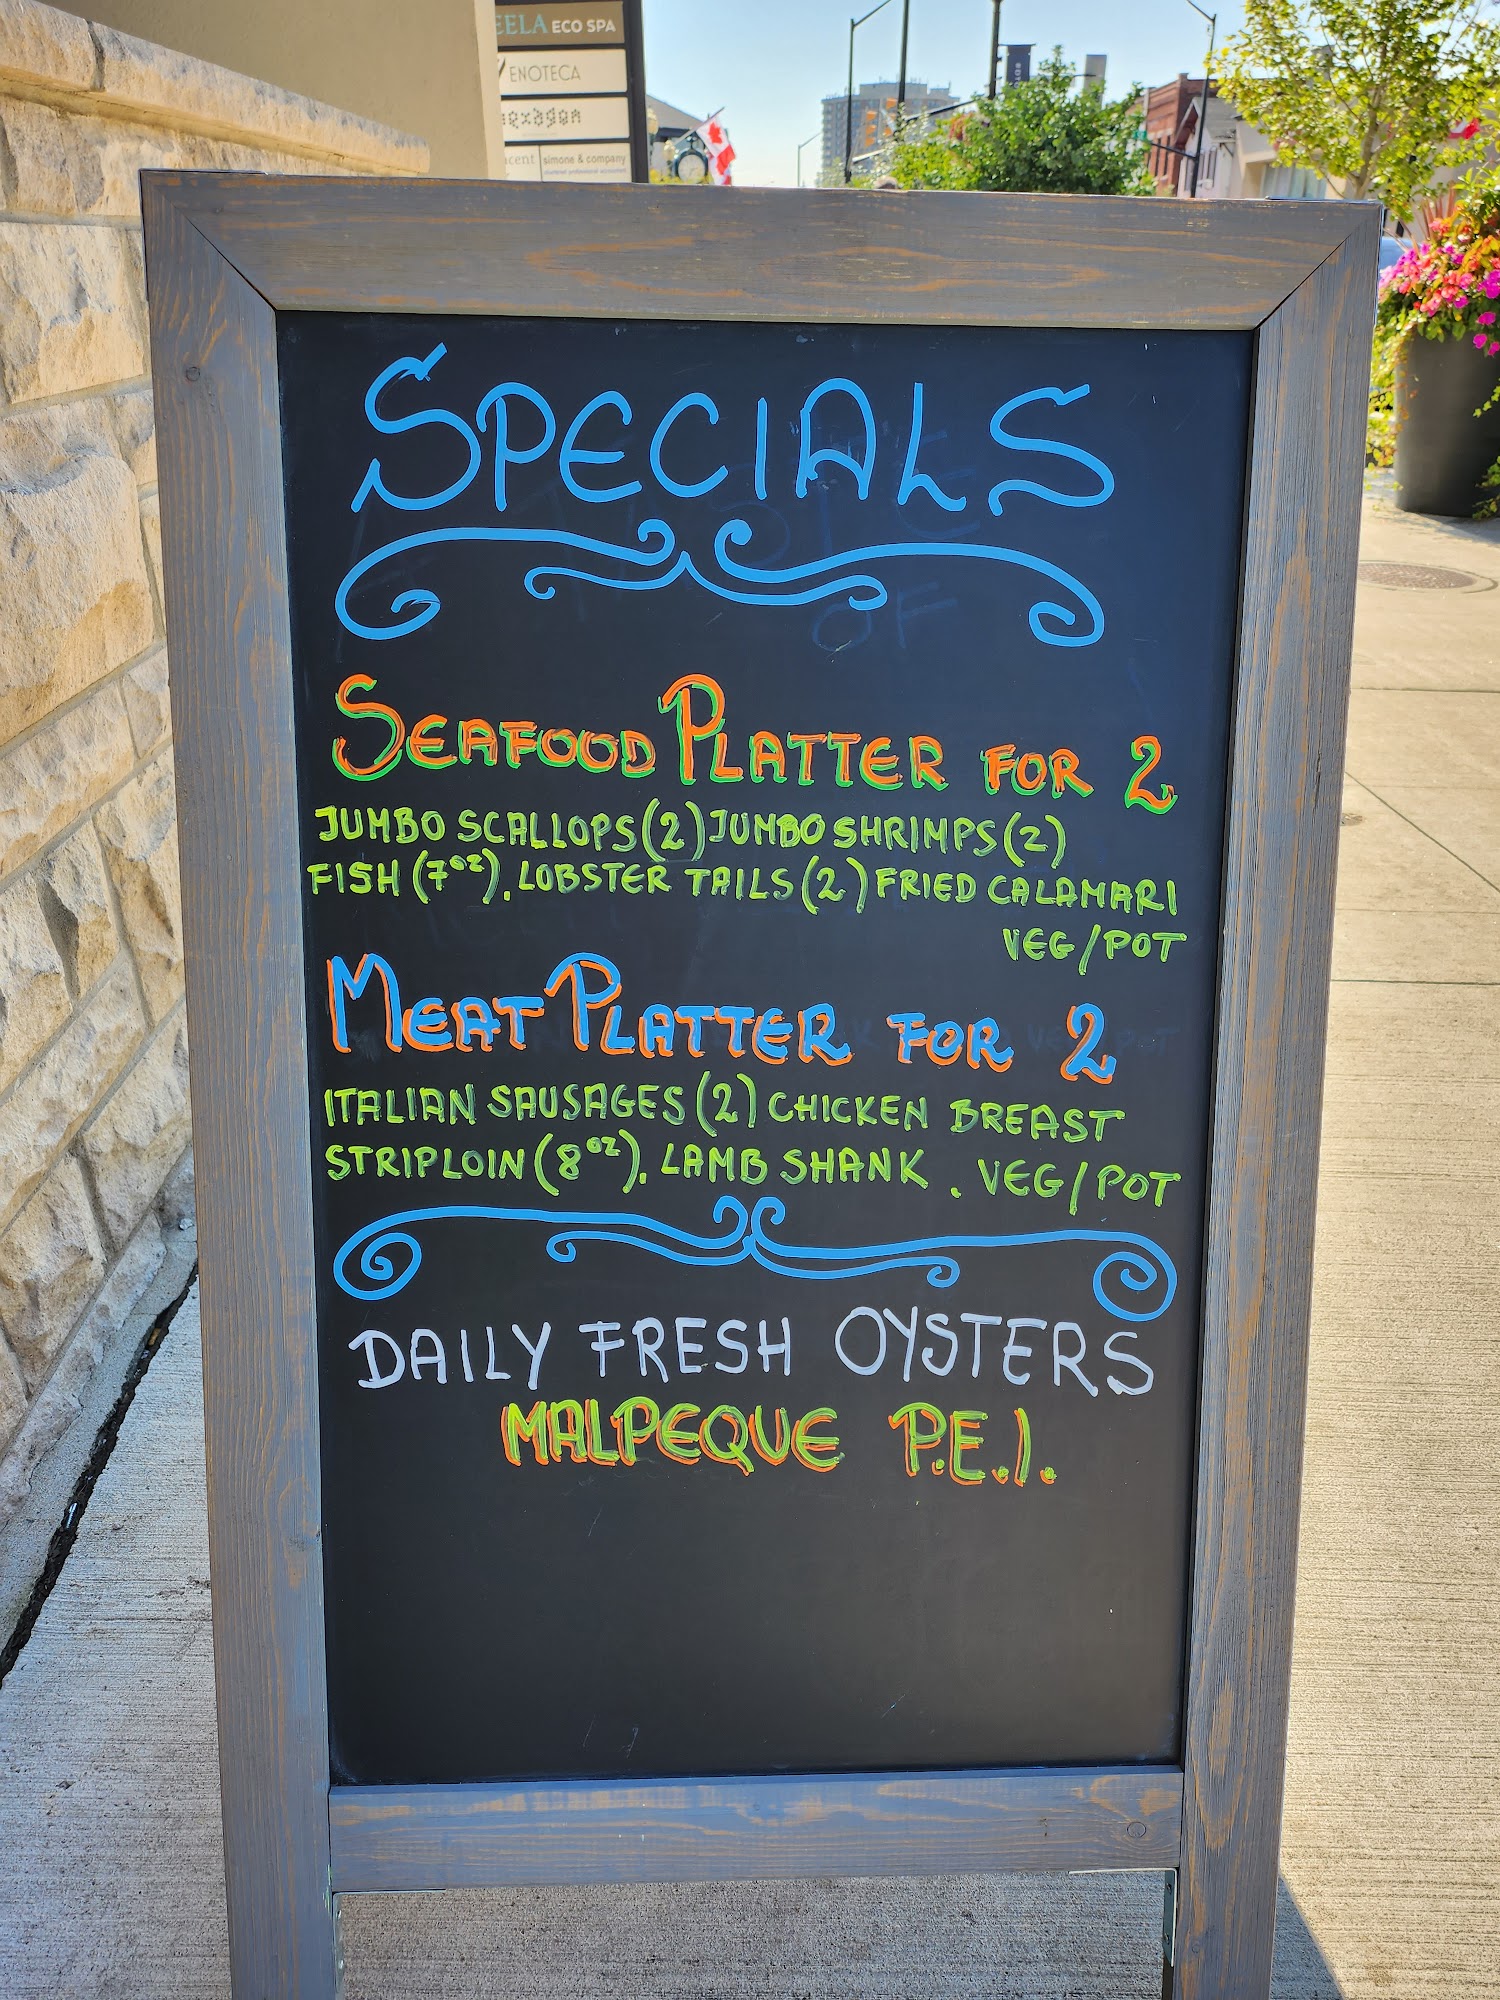 ECO SPA
ENOTECA
simone & company
SPECIALS
SEAFOOD PLATTER FOR 2
JUMBO SCALLOPS (2) JUMBO SHRIMPS (2)
FISH (7oz). LOBSTER TAILS (2) FRIED CALAMARI
VEG/POT
MEAT PLATTER FOR 2
ITALIAN SAUSAGES (2) CHICKEN BREAST
STRIPLOIN (8oz). LAMB SHANK . VEG/POT
DAILY FRESH OYSTERS
MALPEQUE P.E.I.